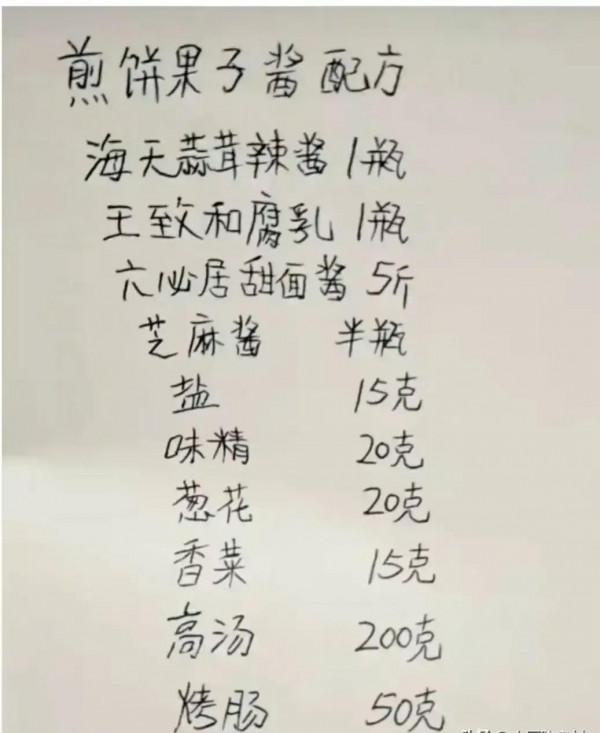 煎饼果子酱配方
海天蒜茸辣酱 1瓶
王致和腐乳 1瓶
六必居甜面酱 5斤
芝麻酱 半瓶
盐 15克
味精 20克
葱花 20克
香菜 15克
高汤 200克
烤肠 50克